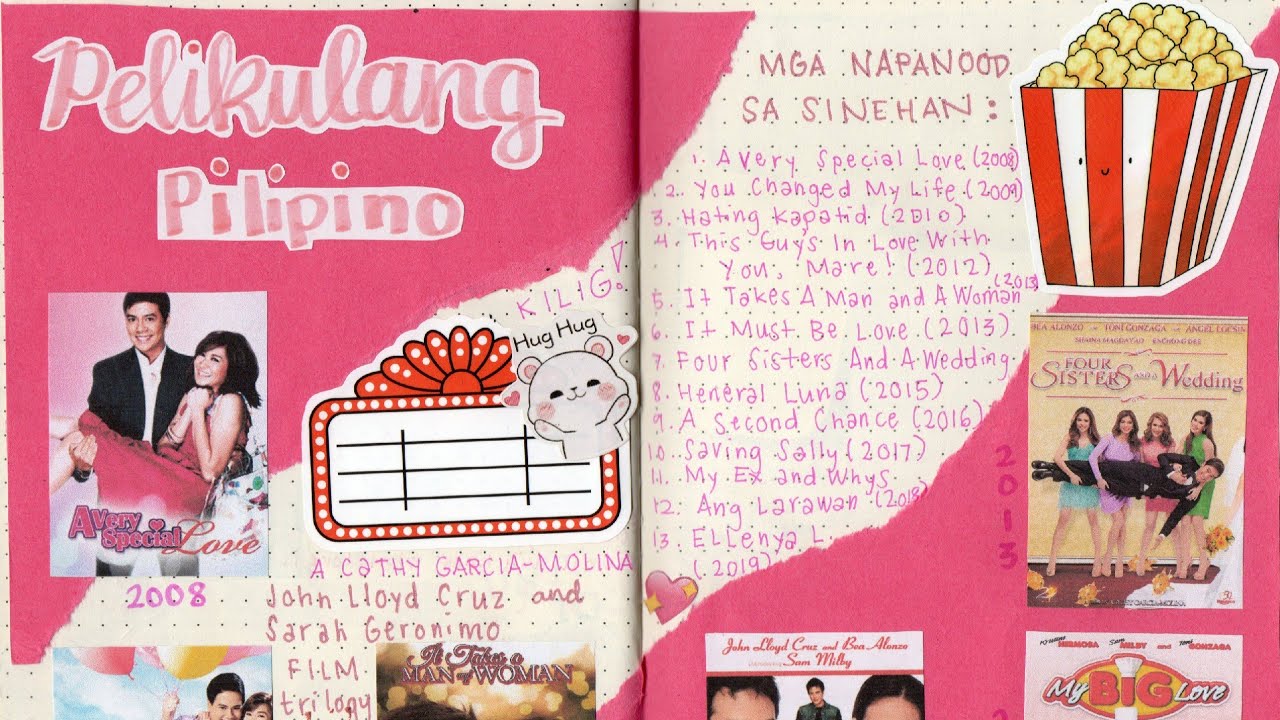 Pelikulang
Pilipino
KILIG!
Hug Hug
A Very
Special Love
A CATHY GARCIA-MOLINA
2008
John Lloyd Cruz and
Sarah Geronimo
FILM
trilogy
It Takes a
MAN and a WOMAN
MGA NAPANOOD
SA SINEHAN:
1. A Very Special Love (2008)
2. You Changed My Life (2009)
3. Hating Kapatid (2010)
4. This Guys In Love With
You, Mare! (2012)
(2013)
5. It Takes A Man and A Woman
6. It Must Be Love (2013)
7. Four Sisters And A Wedding
8. Heneral Luna (2015)
9. A Second Chance (2016)
10. Saving Sally (2017)
11. My Ex and Whys
12. Ang Larawan (2018)
13. Ellenya L.
(2019)
BEA ALONZO TONI GONZAGA ANGEL LOCSIN
SHAINA MAGDAYAO ENCHONG DEE
FOUR
SISTERS and a Wedding
2013
John Lloyd Cruz and Bea Alonzo
Sam Milby
HERMOSA SAM MILBY and TONI GONZAGA
My BIG Love